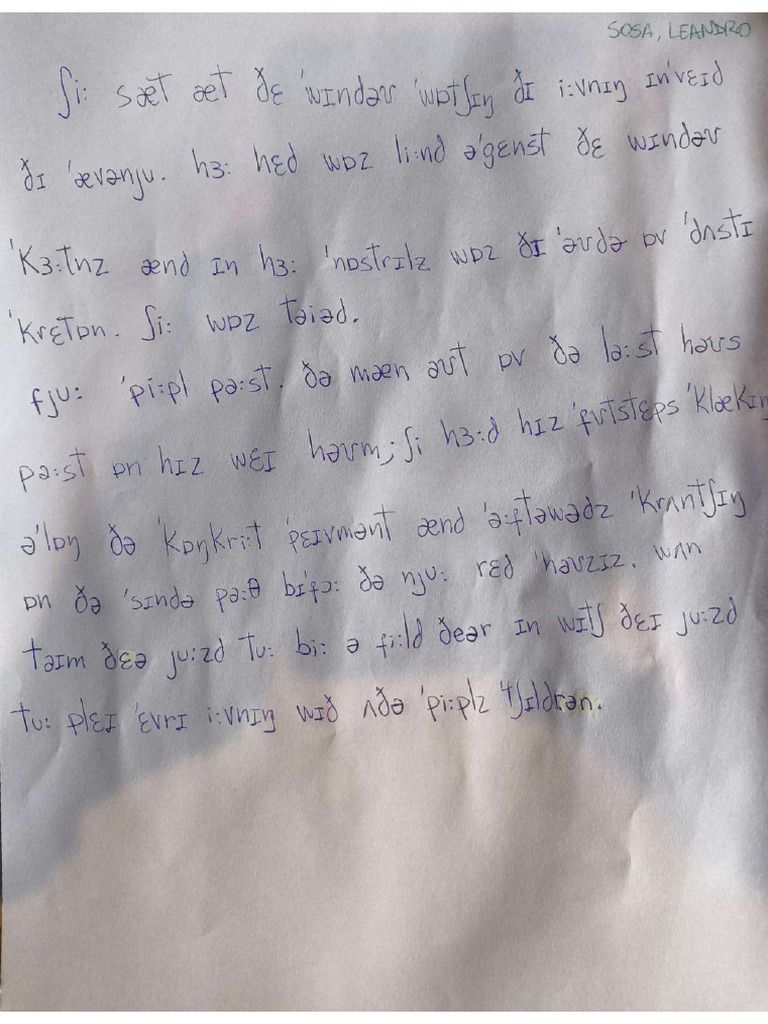 SOSA, LEANDRO
ʃi: sæt æt ðɛ 'wɪndəʊ 'wɒtʃɪŋ ðɪ i:vnɪŋ ɪn'vɛɪd
ðɪ 'ævənju. hɜ: hɛd wɒz li:nd ə'gɛnst ðɛ wɪndəʊ
'kɜ:tnz ænd ɪn hɜ: 'nɒstrɪlz wɒz ðɪ 'əʊdə ɒv 'dʌstɪ
'krɛtɒn. ʃi: wɒz taiəd.
fju: 'pi:pl pə:st. ðə mæn əʊt ɒv ðə lə:st həʊs
pə:st ɒn hɪz wɛɪ həʊm; ʃi hɜ:d hɪz 'fʊtstɛps 'klækɪŋ
ə'lɒŋ ðə 'kɒŋkri:t 'pɛɪvmənt ænd 'ə:ftəwədz 'krʌntʃɪŋ
ɒn ðə 'sɪndə pə:θ bi'fɔ: ðə nju: rɛd 'həʊzɪz. wʌn
təɪm ðɛə ju:zd tu: bi: ə fi:ld ðeər ɪn wɪtʃ ðɛɪ ju:zd
tu: plɛɪ 'ɛvrɪ i:vnɪŋ wɪð ʌðə 'pi:plz 'tʃɪldrən.